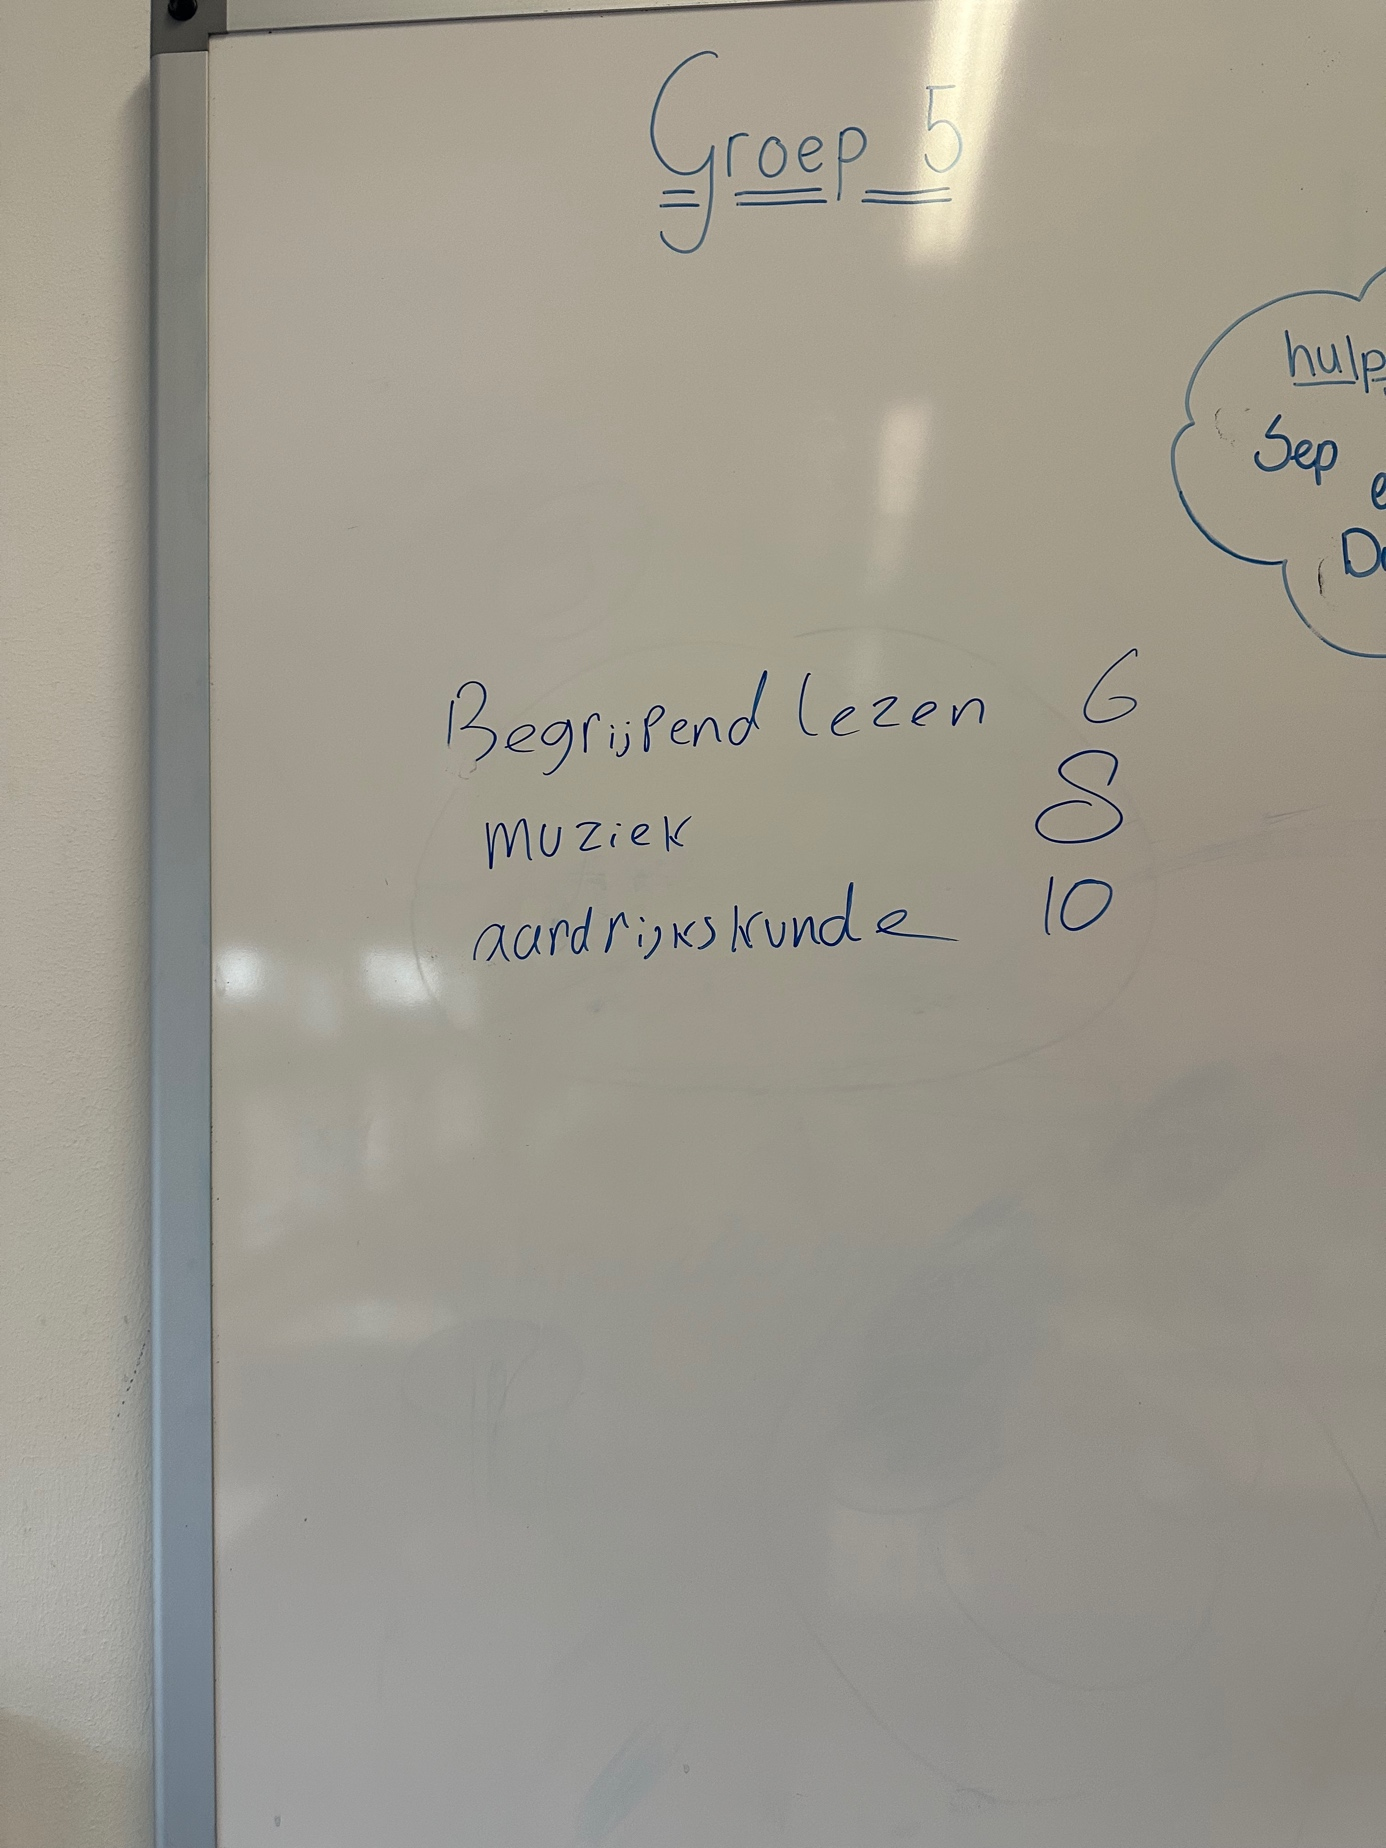 Groep 5
hulp
Sep
e
D
Begrijpend lezen 6
muziek 8
aardrijkskunde 10